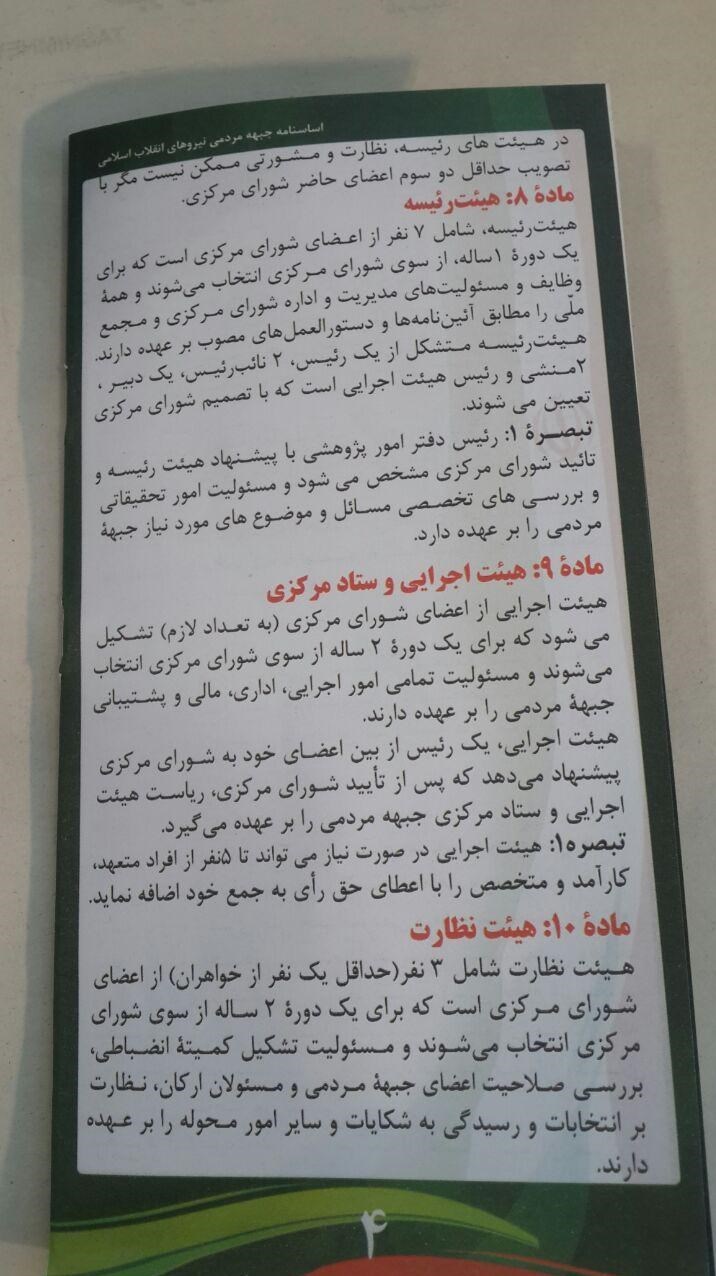 اساسنامه جبهه مردمی نیروهای انقلاب اسلامی
در هیئت های رئیسه، نظارت و مشورتی ممکن نیست مگر با
تصویب حداقل دو سوم اعضای حاضر شورای مرکزی.
مادهٔ ۸: هیئت‌رئیسه
هیئت‌رئیسه، شامل ۷ نفر از اعضای شورای مرکزی است که برای
یک دورهٔ ۱ساله، از سوی شورای مرکزی انتخاب می‌شوند و همهٔ
وظایف و مسئولیت‌های مدیریت و اداره شورای مرکزی و مجمع
ملّی را مطابق آئین‌نامه‌ها و دستورالعمل‌های مصوب بر عهده دارند.
هیئت‌رئیسه متشکل از یک رئیس، ۲ نائب‌رئیس، یک دبیر ،
۲منشی و رئیس هیئت اجرایی است که با تصمیم شورای مرکزی
تعیین می شوند.
تبصرهٔ ۱: رئیس دفتر امور پژوهشی با پیشنهاد هیئت رئیسه و
تائید شورای مرکزی مشخص می شود و مسئولیت امور تحقیقاتی
و بررسی های تخصصی مسائل و موضوع های مورد نیاز جبههٔ
مردمی را بر عهده دارد.
مادهٔ ۹: هیئت اجرایی و ستاد مرکزی
هیئت اجرایی از اعضای شورای مرکزی (به تعداد لازم) تشکیل
می شود که برای یک دورهٔ ۲ ساله از سوی شورای مرکزی انتخاب
می‌شوند و مسئولیت تمامی امور اجرایی، اداری، مالی و پشتیبانی
جبههٔ مردمی را بر عهده دارند.
هیئت اجرایی، یک رئیس از بین اعضای خود به شورای مرکزی
پیشنهاد می‌دهد که پس از تأیید شورای مرکزی، ریاست هیئت
اجرایی و ستاد مرکزی جبهه مردمی را بر عهده می‌گیرد.
تبصره۱: هیئت اجرایی در صورت نیاز می تواند تا ۵نفر از افراد متعهد،
کارآمد و متخصص را با اعطای حق رأی به جمع خود اضافه نماید.
مادهٔ ۱۰: هیئت نظارت
هیئت نظارت شامل ۳ نفر(حداقل یک نفر از خواهران) از اعضای
شورای مرکزی است که برای یک دورهٔ ۲ ساله از سوی شورای
مرکزی انتخاب می‌شوند و مسئولیت تشکیل کمیتهٔ انضباطی،
بررسی صلاحیت اعضای جبههٔ مردمی و مسئولان ارکان، نظارت
بر انتخابات و رسیدگی به شکایات و سایر امور محوله را بر عهده
دارند.
۴